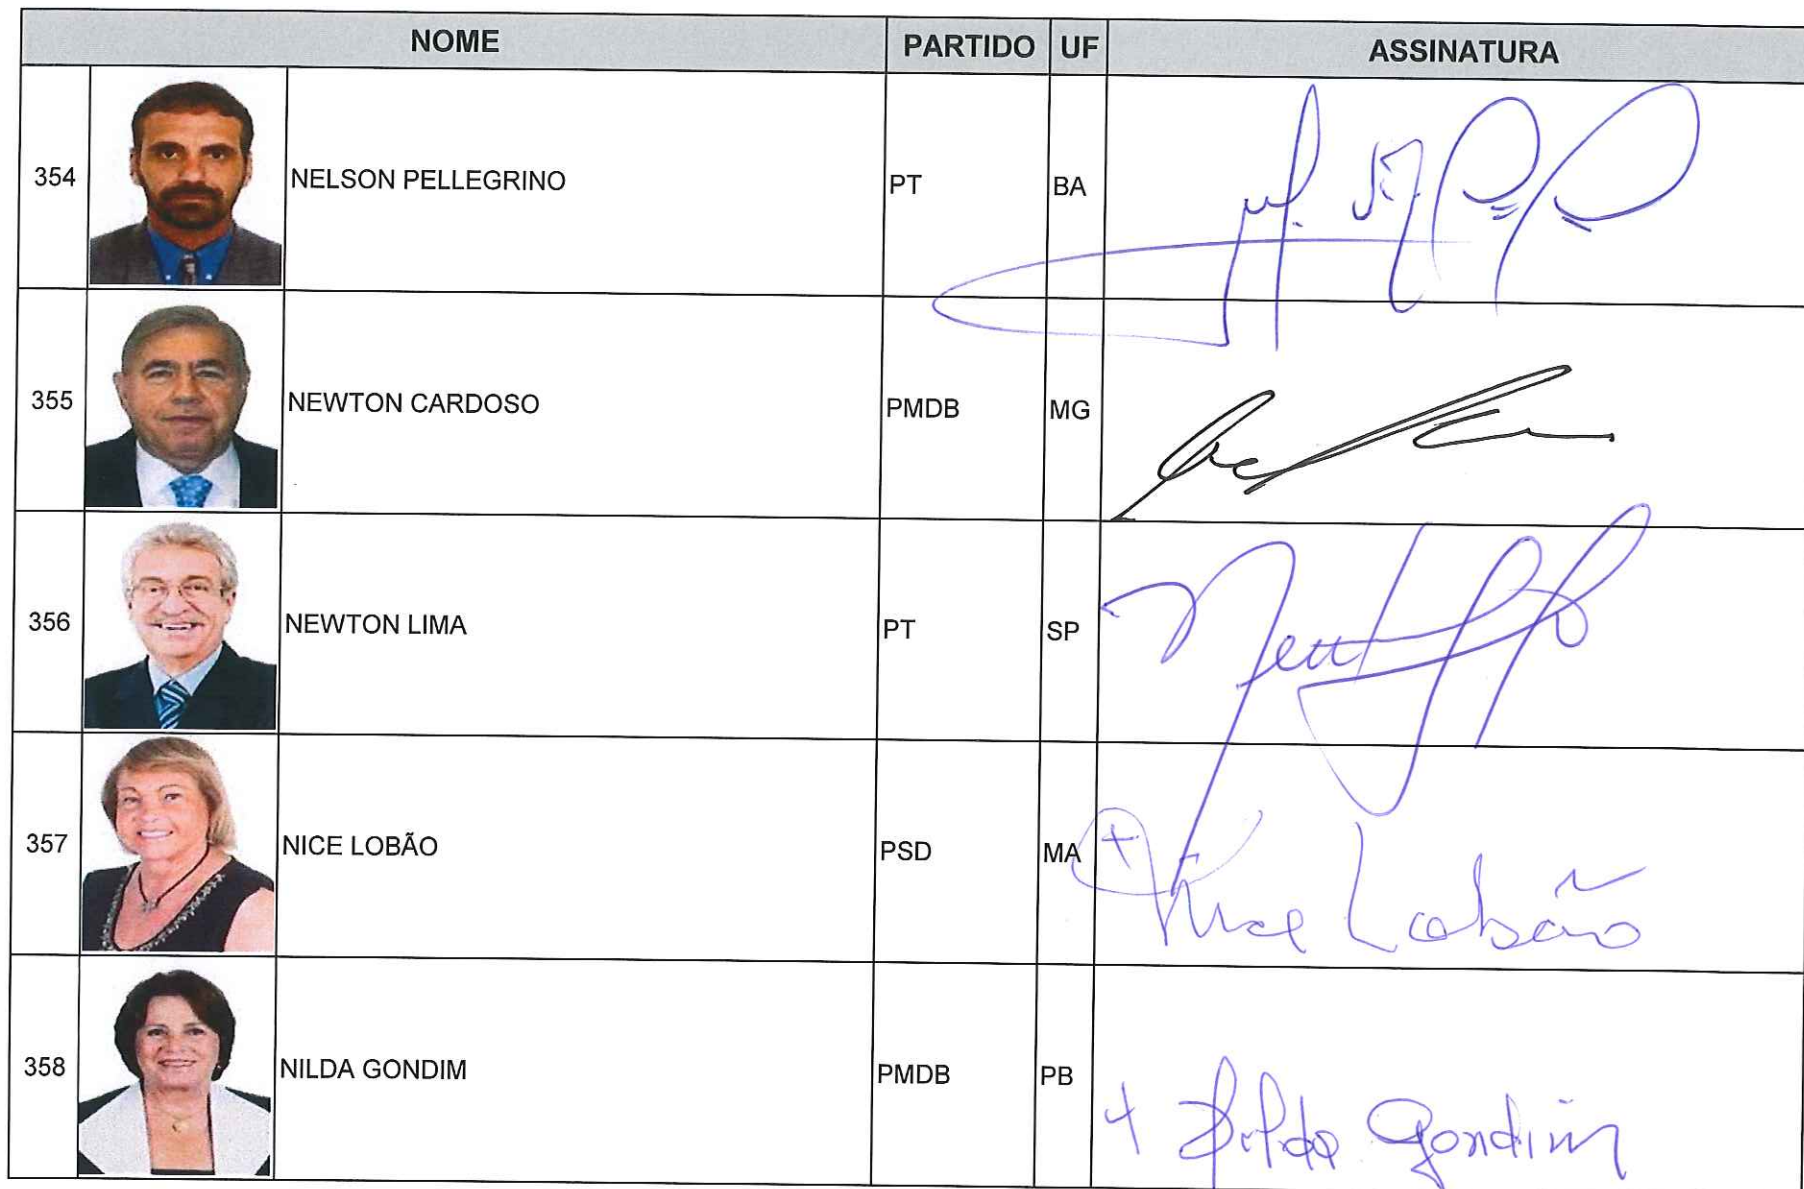 NOME PARTIDO UF ASSINATURA
354 NELSON PELLEGRINO PT BA
355 NEWTON CARDOSO PMDB MG
356 NEWTON LIMA PT SP
357 NICE LOBÃO PSD MA + Nice Lobão
358 NILDA GONDIM PMDB PB + Nilda Gondim